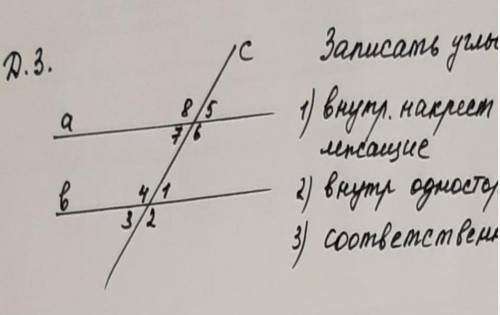 Д.З.
Записать углы
1) внутр. накрест
лежащие
2) внутр одностор
3) соответственн
a
в
c
8 5
7 6
4 1
3 2